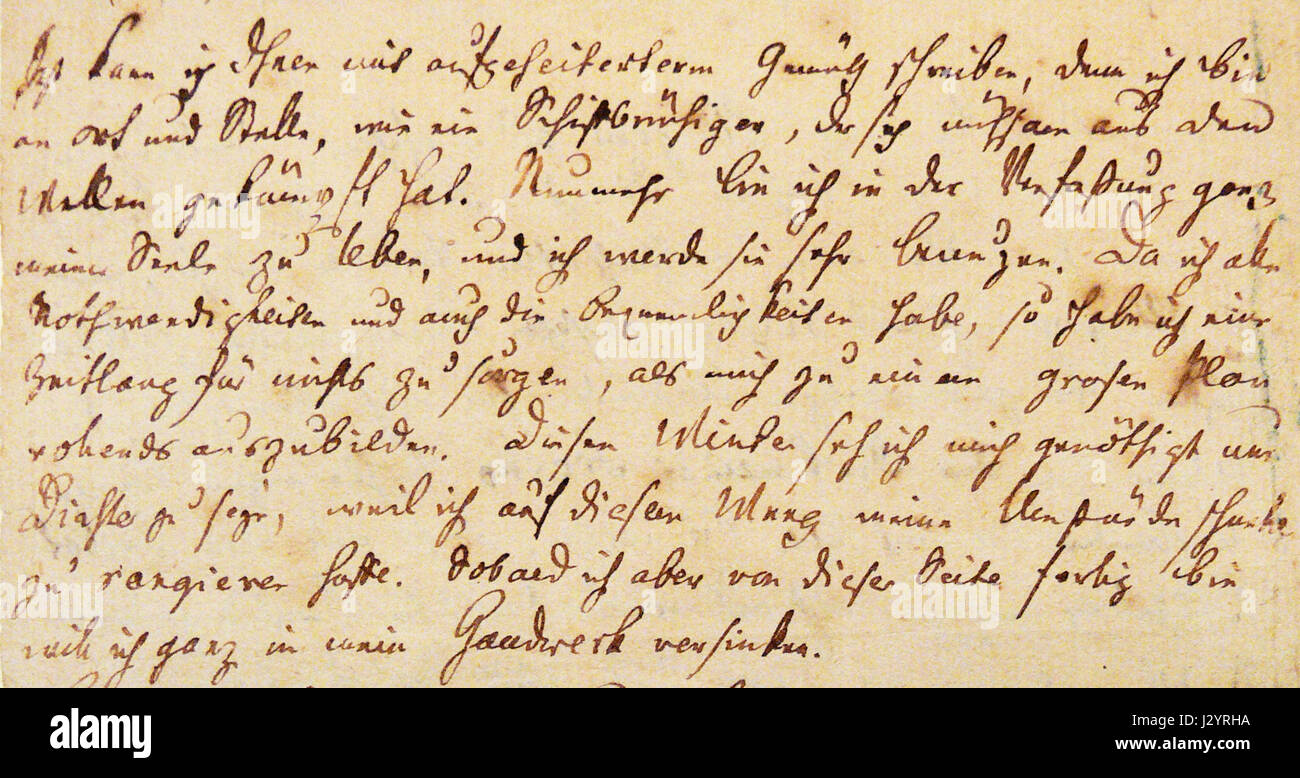 Jezt kann ich Ihnen mit aufgeheitertem Gemüth schreiben, denn ich bin
an Ort und Stelle, wie ein Schiffbrüchiger, der sich mühsam aus den
Wellen gekämpft hat. Nunmehr bin ich in der Verfassung ganz
meiner Seele zu leben, und ich werde sie sehr benuzen. Da ich alle
Nothwendigkeiten und auch die Bequemlichkeiten habe, so habe ich eine
Zeitlang für nichts zu sorgen, als mich zu einem grosen Plan
vollends auszubilden. Diesen Winter seh ich mich genöthigt nur
Dichter zu seyn, weil ich auf diesem Weeg meine Umstände schneller
zu rangieren hoffe. Sobald ich aber von dieser Seite fertig bin
will ich ganz in mein Handwerk versinken.
alamy
Image ID: J2YRHA
www.alamy.com